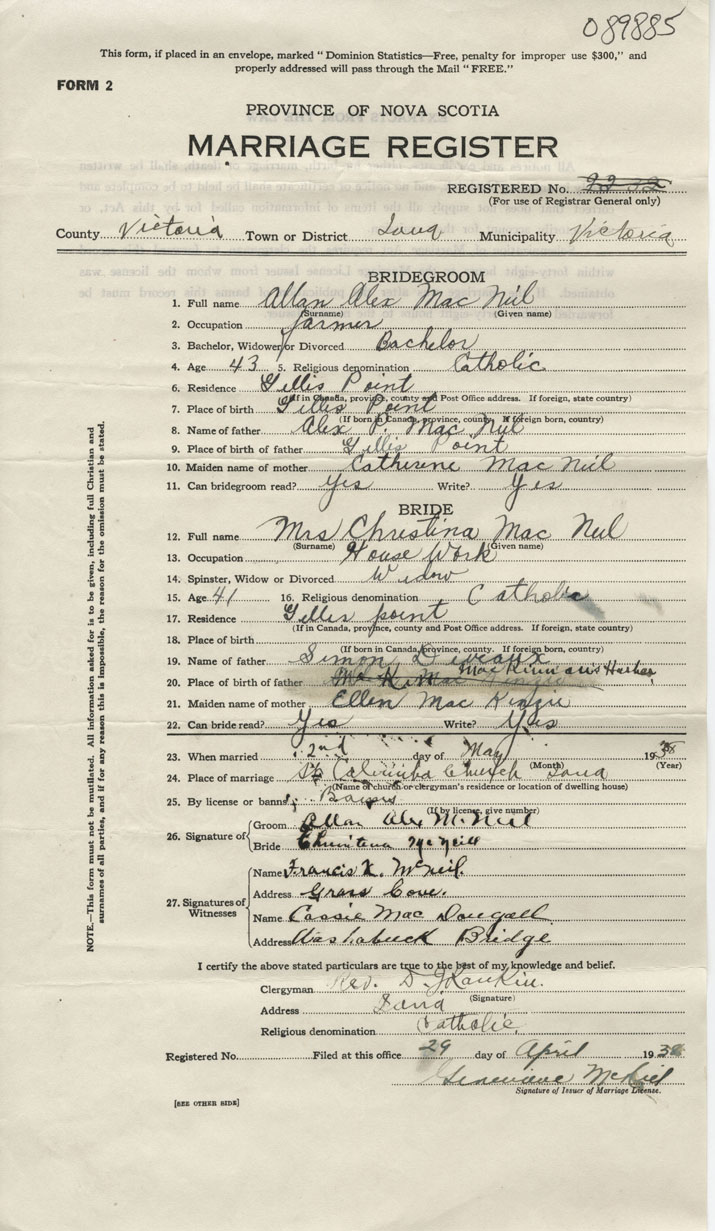 089885
This form, if placed in an envelope, marked "Dominion Statistics—Free, penalty for improper use $300," and
properly addressed will pass through the Mail "FREE."
FORM 2
PROVINCE OF NOVA SCOTIA
MARRIAGE REGISTER
REGISTERED No.
(For use of Registrar General only)
County Victoria Town or District Iona Municipality Victoria
BRIDEGROOM
1. Full name Allan Alex Mac Neil
(Surname) (Given name)
2. Occupation farmer
3. Bachelor, Widower or Divorced Bachelor
4. Age 43 5. Religious denomination Catholic
6. Residence Gillis Point
(If in Canada, province, county and Post Office address. If foreign, state country)
7. Place of birth Gillis Point
(If born in Canada, province, county. If foreign born, country)
8. Name of father Alex P. Mac Neil
9. Place of birth of father Gillis Point
10. Maiden name of mother Catherine Mac Neil
11. Can bridegroom read? Yes Write? Yes
BRIDE
12. Full name Mrs Christina Mac Neil
(Surname) (Given name)
13. Occupation House Work
14. Spinster, Widow or Divorced Widow
15. Age 41 16. Religious denomination Catholic
17. Residence Gillis point
(If in Canada, province, county and Post Office address. If foreign, state country)
18. Place of birth
(If born in Canada, province, county. If foreign born, country)
19. Name of father Simon Deveaux
20. Place of birth of father MacKinnons Harbor
21. Maiden name of mother Ellen Mac Kenzie
22. Can bride read? Yes Write? Yes
23. When married 2nd day of May 1938
(Month) (Year)
24. Place of marriage St Columba Church Iona
(Name of church or clergyman's residence or location of dwelling house)
25. By license or banns Banns
(If by license, give number)
26. Signature of Groom Allan Alex McNeil
Bride Christena McNeill
27. Signatures of Witnesses
Name Francis X. McNeil
Address Grass Cove.
Name Cassie Mac Dougall
Address Washabuck Bridge
I certify the above stated particulars are true to the best of my knowledge and belief.
Clergyman Rev. D. J Rankin.
(Signature)
Address Iona
Religious denomination Catholic
Registered No. Filed at this office 29 day of April 1938
Genevieve McNeil
Signature of Issuer of Marriage License.
[SEE OTHER SIDE]
NOTE.—This form must not be mutilated. All information asked for is to be given, including full Christian and
surnames of all parties, and if for any reason this is impossible, the reason for the omission must be stated.